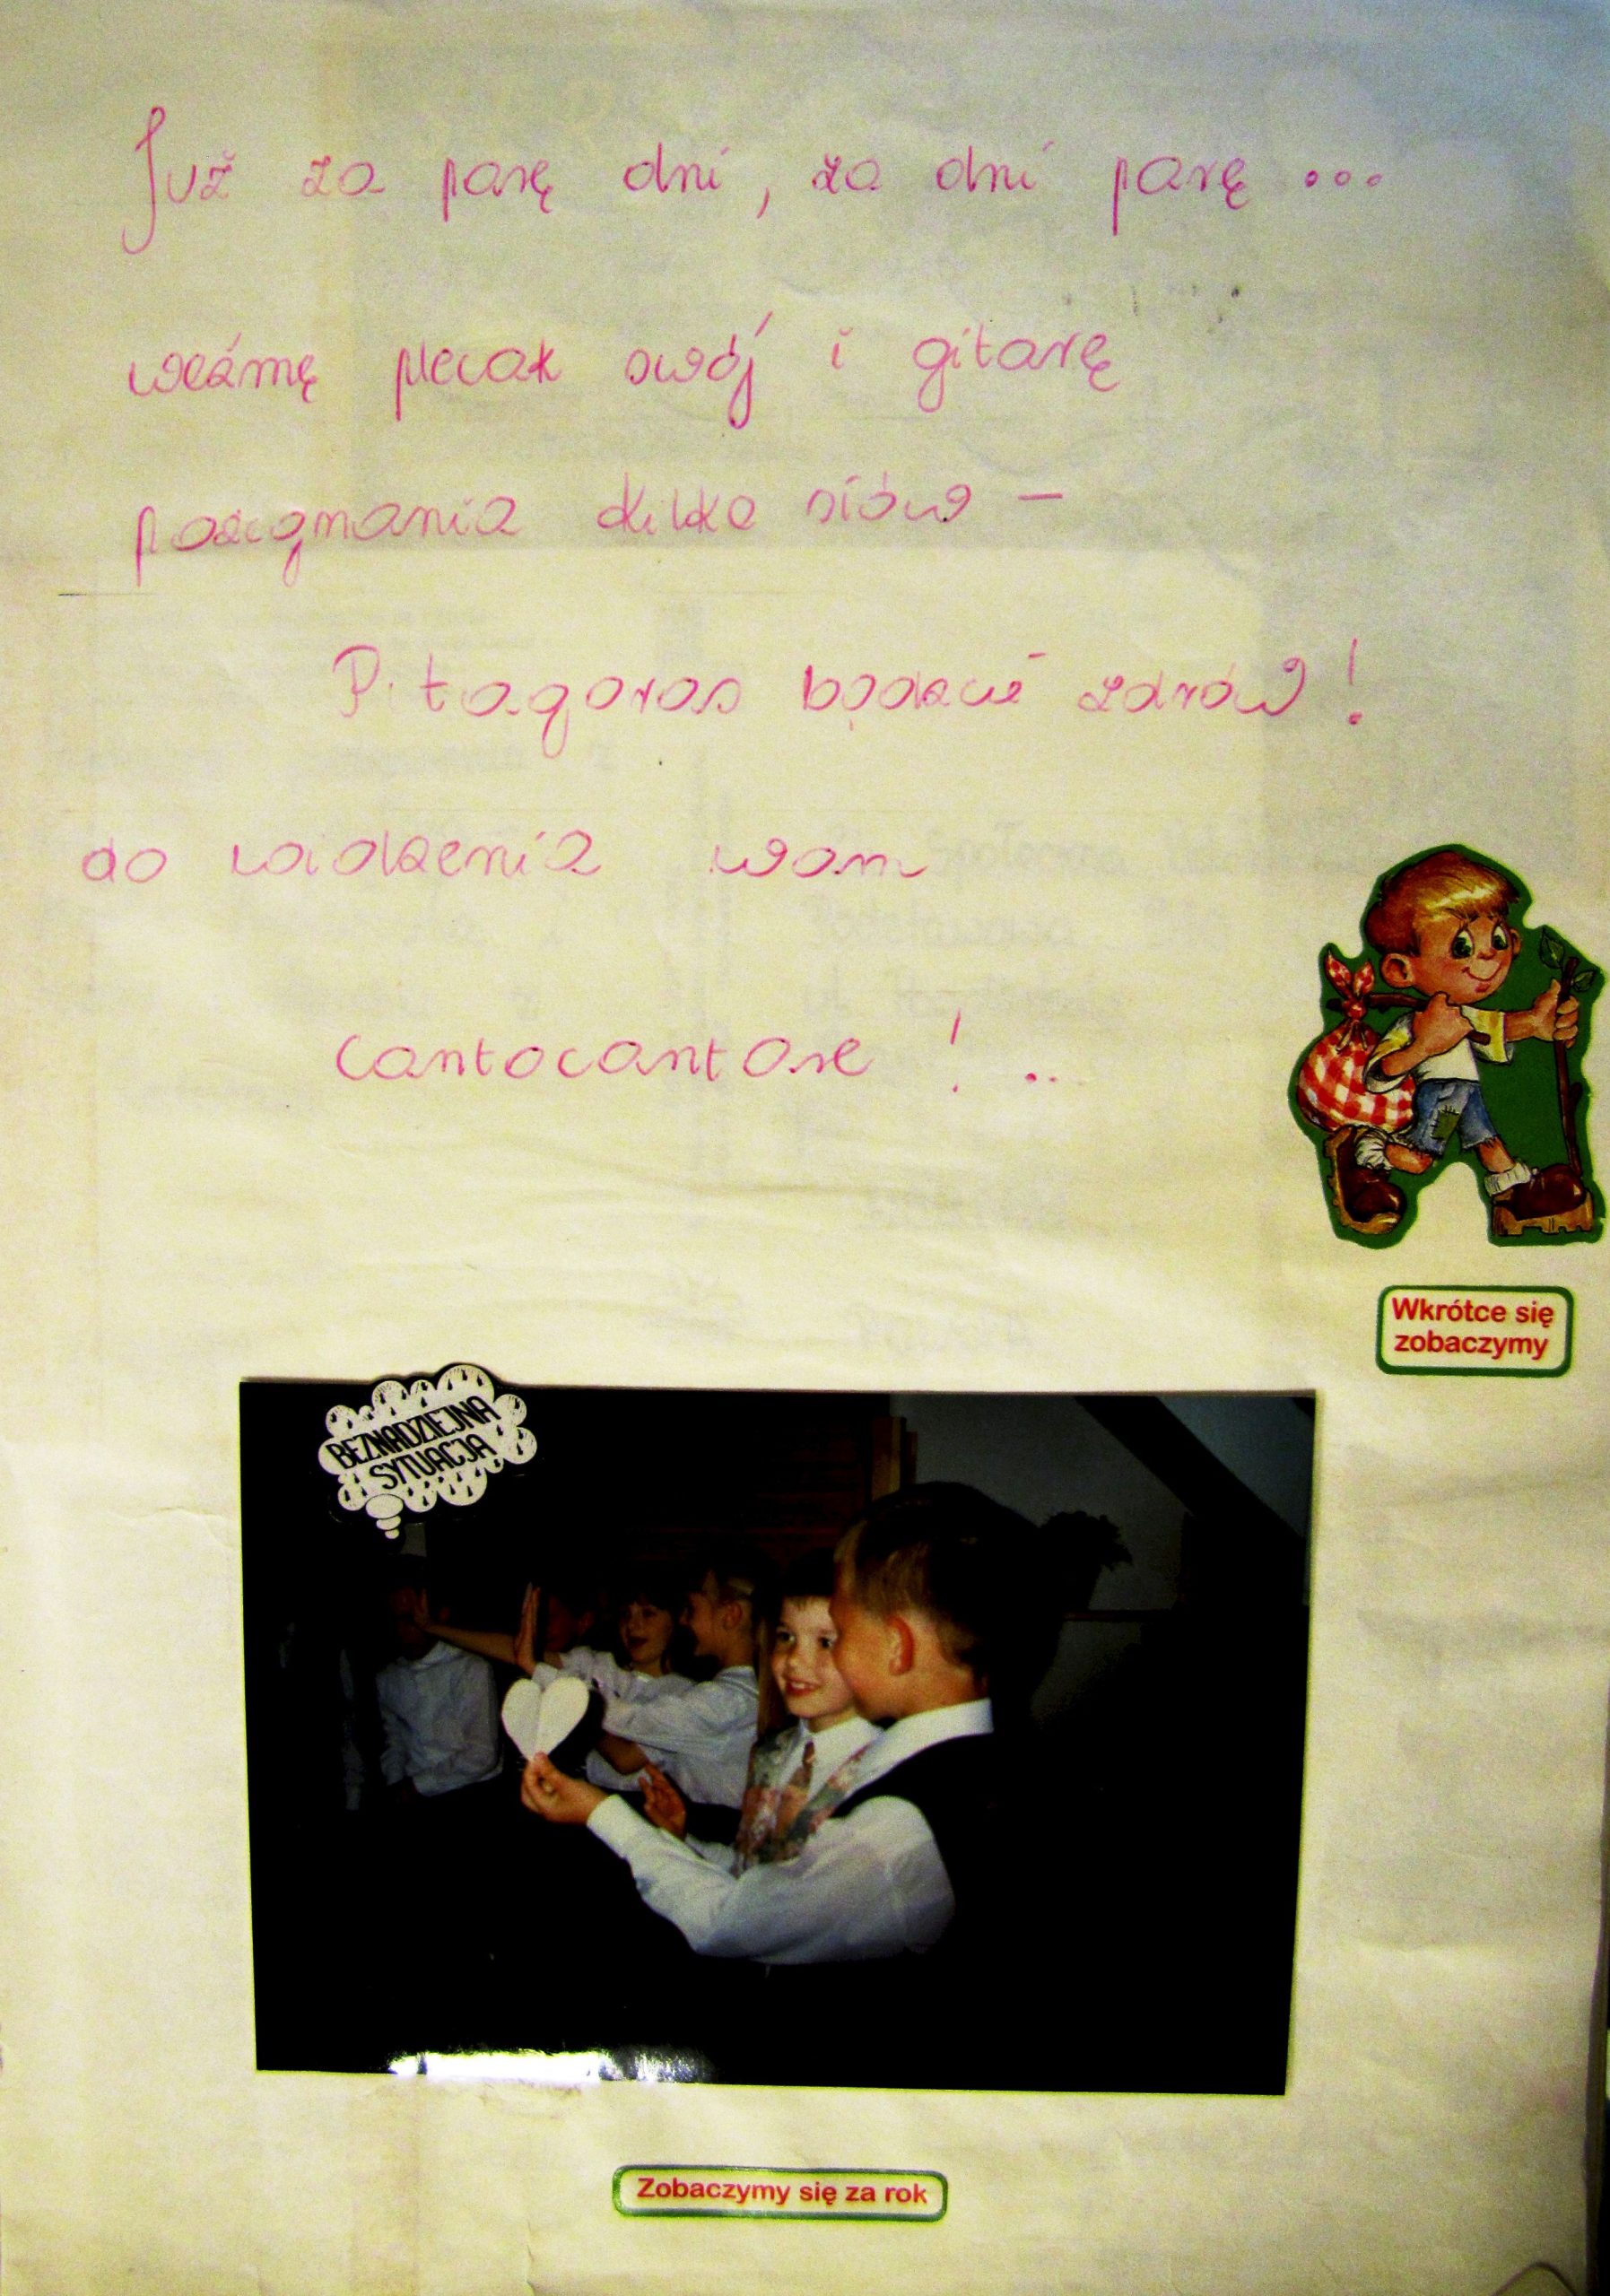 Już za parę dni, za dni parę ...
wezmę plecak swój i gitarę
pożegnania kilka słów -
Pitagoras bądźcie zdrów!
do widzenia wam
Cantocantare! ..
Wkrótce się
zobaczymy
BEZNADZIEJNA
SYTUACJA
Zobaczymy się za rok